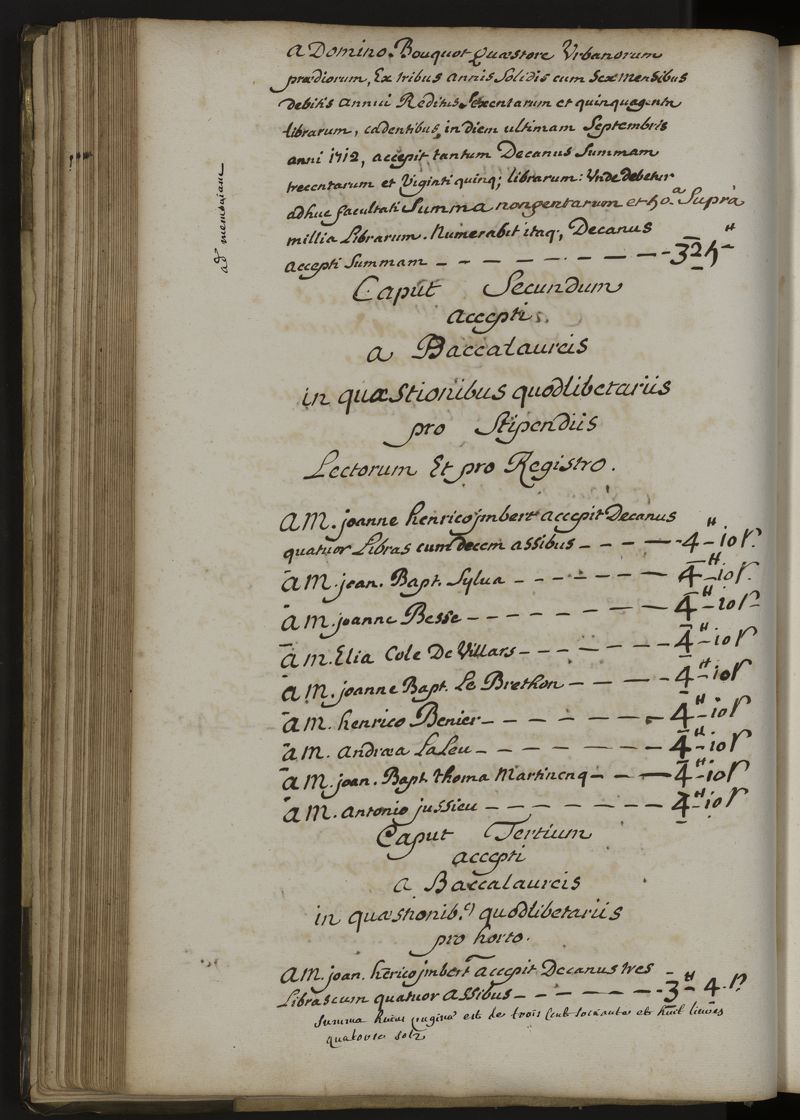 a Domino. Bouquot Quæstore Urbanorum
prædiorum, Ex tribus annis Solidis cum Sex mensibus
debitis annui Reditus Sexcentarum et quinquaginta
librarum, cadentibus in diem ultimam Septembris
anni 1712, accepit tantum Decanus Summam
trecentarum et Viginti quinq; librarum: Unde debetur
adhuc facultati Summa nongentarum et 50.a Suprà
millia Librarum. Numerabit itaq, Decanus
accepti Summam - - - - - - - - 325 ʺ
ad memoriam
Caput Secundum
accepti.
a Baccalaureis
in quæstionibus quodlibetariis
pro Stipendiis
Lectorum Et pro Registro.
a M. joanne henrico jmbert accepit Decanus
quatuor Libras cum decem assibus - - - - - 4 ʺ - 10 s.
a M. jean. Bapt. Sylua - - - - - - 4 ʺ - 10 s.
a M. joanne Besse - - - - - - - 4 ʺ - 10 s
a M. Elia Cole De Villars - - - - - - 4 ʺ - 10 s
a M. joanne Bapt. Le Brethon - - - - 4 ʺ - 10 s
a M. henrico Benier - - - - - - - 4 ʺ - 10 s
a M. andræa LaLeu - - - - - - - 4 ʺ - 10 s
a M. joan. Bapt. thoma Martinenq - - - 4 ʺ - 10 s
a M. antonio jussieu - - - - - - - 4 ʺ - 10 s
Caput Tertium
accepti
a Baccalaureis
in quæstionib.9 quodlibetariis
pro horto.
a M. joan. hērico jmbert accepit Decanus tres
Libras cum quatuor assibus - - - - - - 3 ʺ - 4 s.
Summa huius paginæ est de trois cent soixante et huit livres
quatorze solz